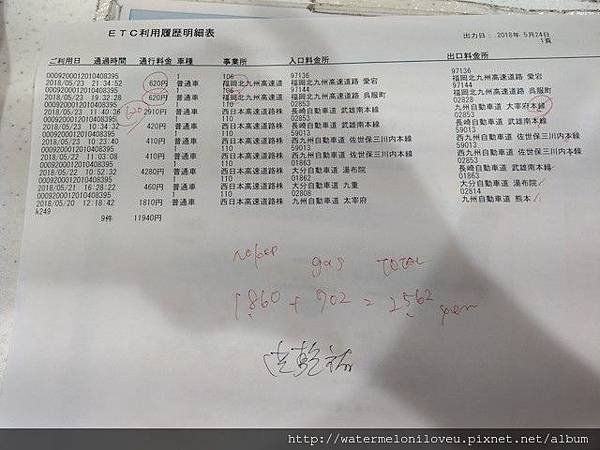 ETC利用履歴明細表
出力日: 2018年 5月24日
1頁
ご利用日 通過時間 通行料金 車種 事業所 入口料金所 出口料金所
0009200012010408395 1 106 97136 97136
2018/05/23 21:34:52 620円 普通車 福岡北九州高速道 福岡北九州高速道路 愛宕 福岡北九州高速道路 愛宕
0009200012010408395 1 106 97144 97144
2018/05/23 19:32:28 620円 普通車 福岡北九州高速道 福岡北九州高速道路 呉服町 福岡北九州高速道路 呉服町
0009200012010408395 1 110 02853 02828
2018/05/23 11:40:36 2910円 普通車 西日本高速道路株 長崎自動車道 武雄南本線 九州自動車道 太宰府本線
0009200012010408395 1 110 59013 02853
2018/05/23 10:34:32 420円 普通車 西日本高速道路株 西九州自動車道 佐世保三川内本線 長崎自動車道 武雄南本線
0009200012010408395 1 110 59013 59013
2018/05/23 10:23:40 410円 普通車 西日本高速道路株 西九州自動車道 佐世保三川内本線 西九州自動車道 佐世保三川内本線
0009200012010408395 1 110 02853 59013
2018/05/22 11:03:08 410円 普通車 西日本高速道路株 長崎自動車道 武雄南本線 西九州自動車道 佐世保三川内本線
0009200012010408395 1 110 01863 02853
2018/05/22 10:52:32 4280円 普通車 西日本高速道路株 大分自動車道 湯布院 長崎自動車道 武雄南本線
0009200012010408395 1 110 01862 01863
2018/05/21 16:28:22 460円 普通車 西日本高速道路株 大分自動車道 九重 大分自動車道 湯布院
0009200012010408395 1 110 02808 02814
2018/05/20 12:18:42 1810円 普通車 西日本高速道路株 九州自動車道 太宰府 九州自動車道 熊本
k249
9件 11940円
gas TOTAL
1860 + 702 = 2562 yen
http://watermeloniloveu.pixnet.net/album